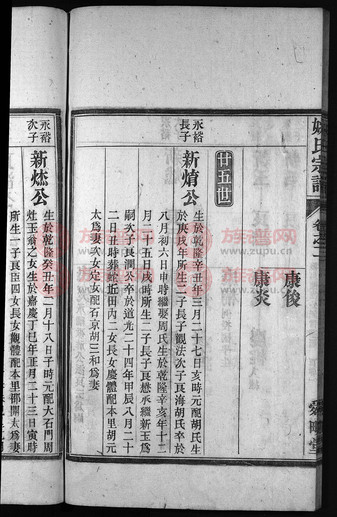 姚氏宗譜
卷之二
舜鄰堂
康俊
康炎
廿五世
永裕長子
新焴公
生於乾隆辛丑年三月二十七日亥時元配胡氏生
於庚戌年所生二子長子觀法次子良海胡氏卒於
八月初六日申時繼娶周氏生於乾隆辛亥年十二
月二十五日戌時所生二子長子良懋承繼新玉為
嗣次子良潤公卒於道光二十四年甲辰八月二十
二日丑時葬蛇近田內二女長女慶體配本里胡元
太為妻次女定女配石京胡三和為妻
永裕次子
新烋公
生於乾隆癸丑年二月十八日子時元配大石門周
灶玉翁之女生於嘉慶丁巳年正月二十三日寅時
所生一子良臣四女長女觀體配本里邵開太為妻
族譜网
www.zupu.cn